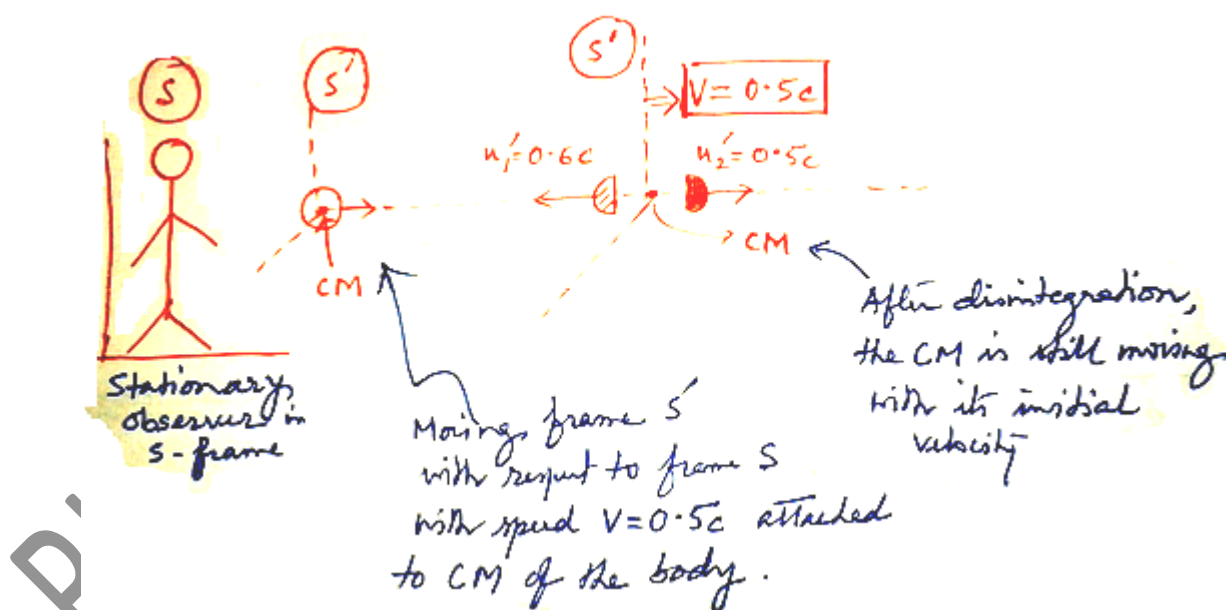 S
S'
S'
V = 0.5c
u₁' = 0.6c
u₂' = 0.5c
CM
CM
Stationary
observer in
S-frame
Moving frame S'
with respect to frame S
with speed V = 0.5c attached
to CM of the body.
After disintegration,
the CM is still moving
with its initial
velocity
D